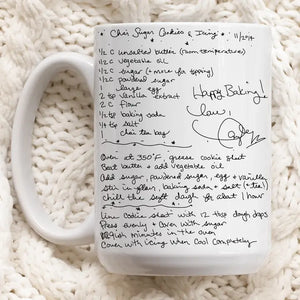 Chai Sugar Cookies & Icing 11/2014
1/2 C unsalted butter (room temperature)
1/2 C vegetable oil
1/2 C sugar (+ more for topping)
1/2 C powdered sugar
1 large egg
2 tsp vanilla extract
2 C flour
1/2 tsp baking soda
1/4 tsp salt
chai tea bag
Happy Baking!
Love,
Oven at 350°F, grease cookie sheet
Beat butter + add vegetable oil
Add sugar, powdered sugar, egg + vanilla
Stir in flour, baking soda + salt (+ tea!)
Chill the soft dough for about 1 hour
Line cookie sheet with 12 tbsp dough drops
Press evenly + cover with sugar
minutes in the oven
Cover with icing when cool completely